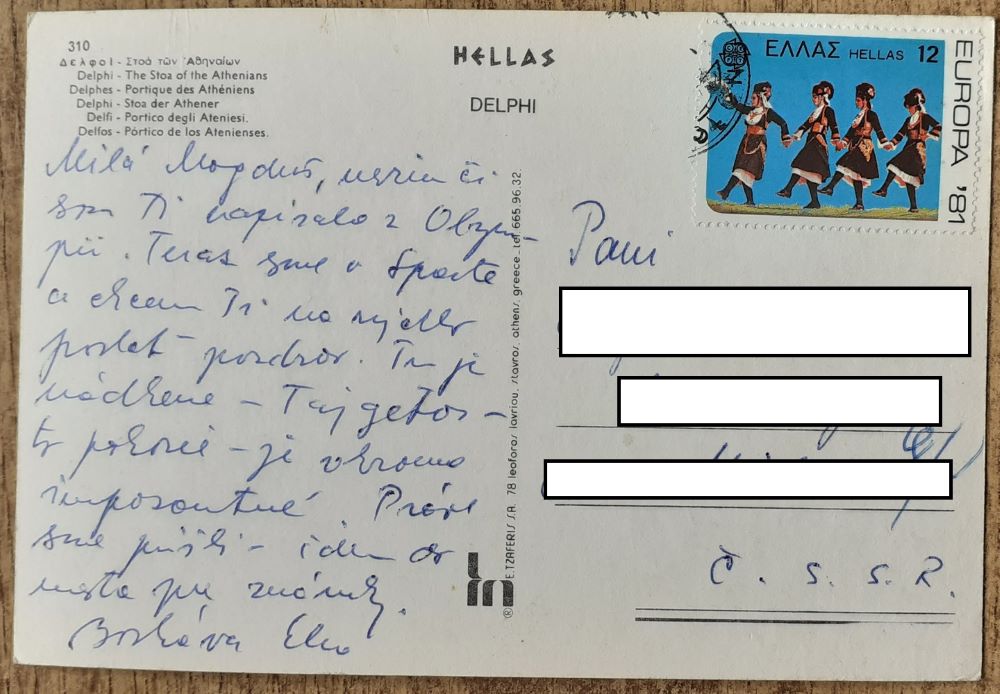 310
Δελφοί - Στοά τῶν Ἀθηναίων
Delphi - The Stoa of the Athenians
Delphes - Portique des Athéniens
Delphi - Stoa der Athener
Delfi - Portico degli Ateniesi.
Delfos - Pórtico de los Atenienses.
HELLAS
DELPHI
ΕΛΛΑΣ HELLAS 12
EUROPA '81
Milá Magduš, neviem či
som Ti napísala z Olym-
pii. Teraz sme v Sparte
a chcem Ti na
poslať pozdrav. Tu je
nádherne - Tajgetos -
to pohorie - je ohromne
imposantné. Práve
sme prišli - idem do
mesta pre známky.
Elena
E. TZAFERIS S.A. 78 leoforos lavriou, stavros, athens, greece - tel. 665.96.32.
Pani
Č. S. S. R.